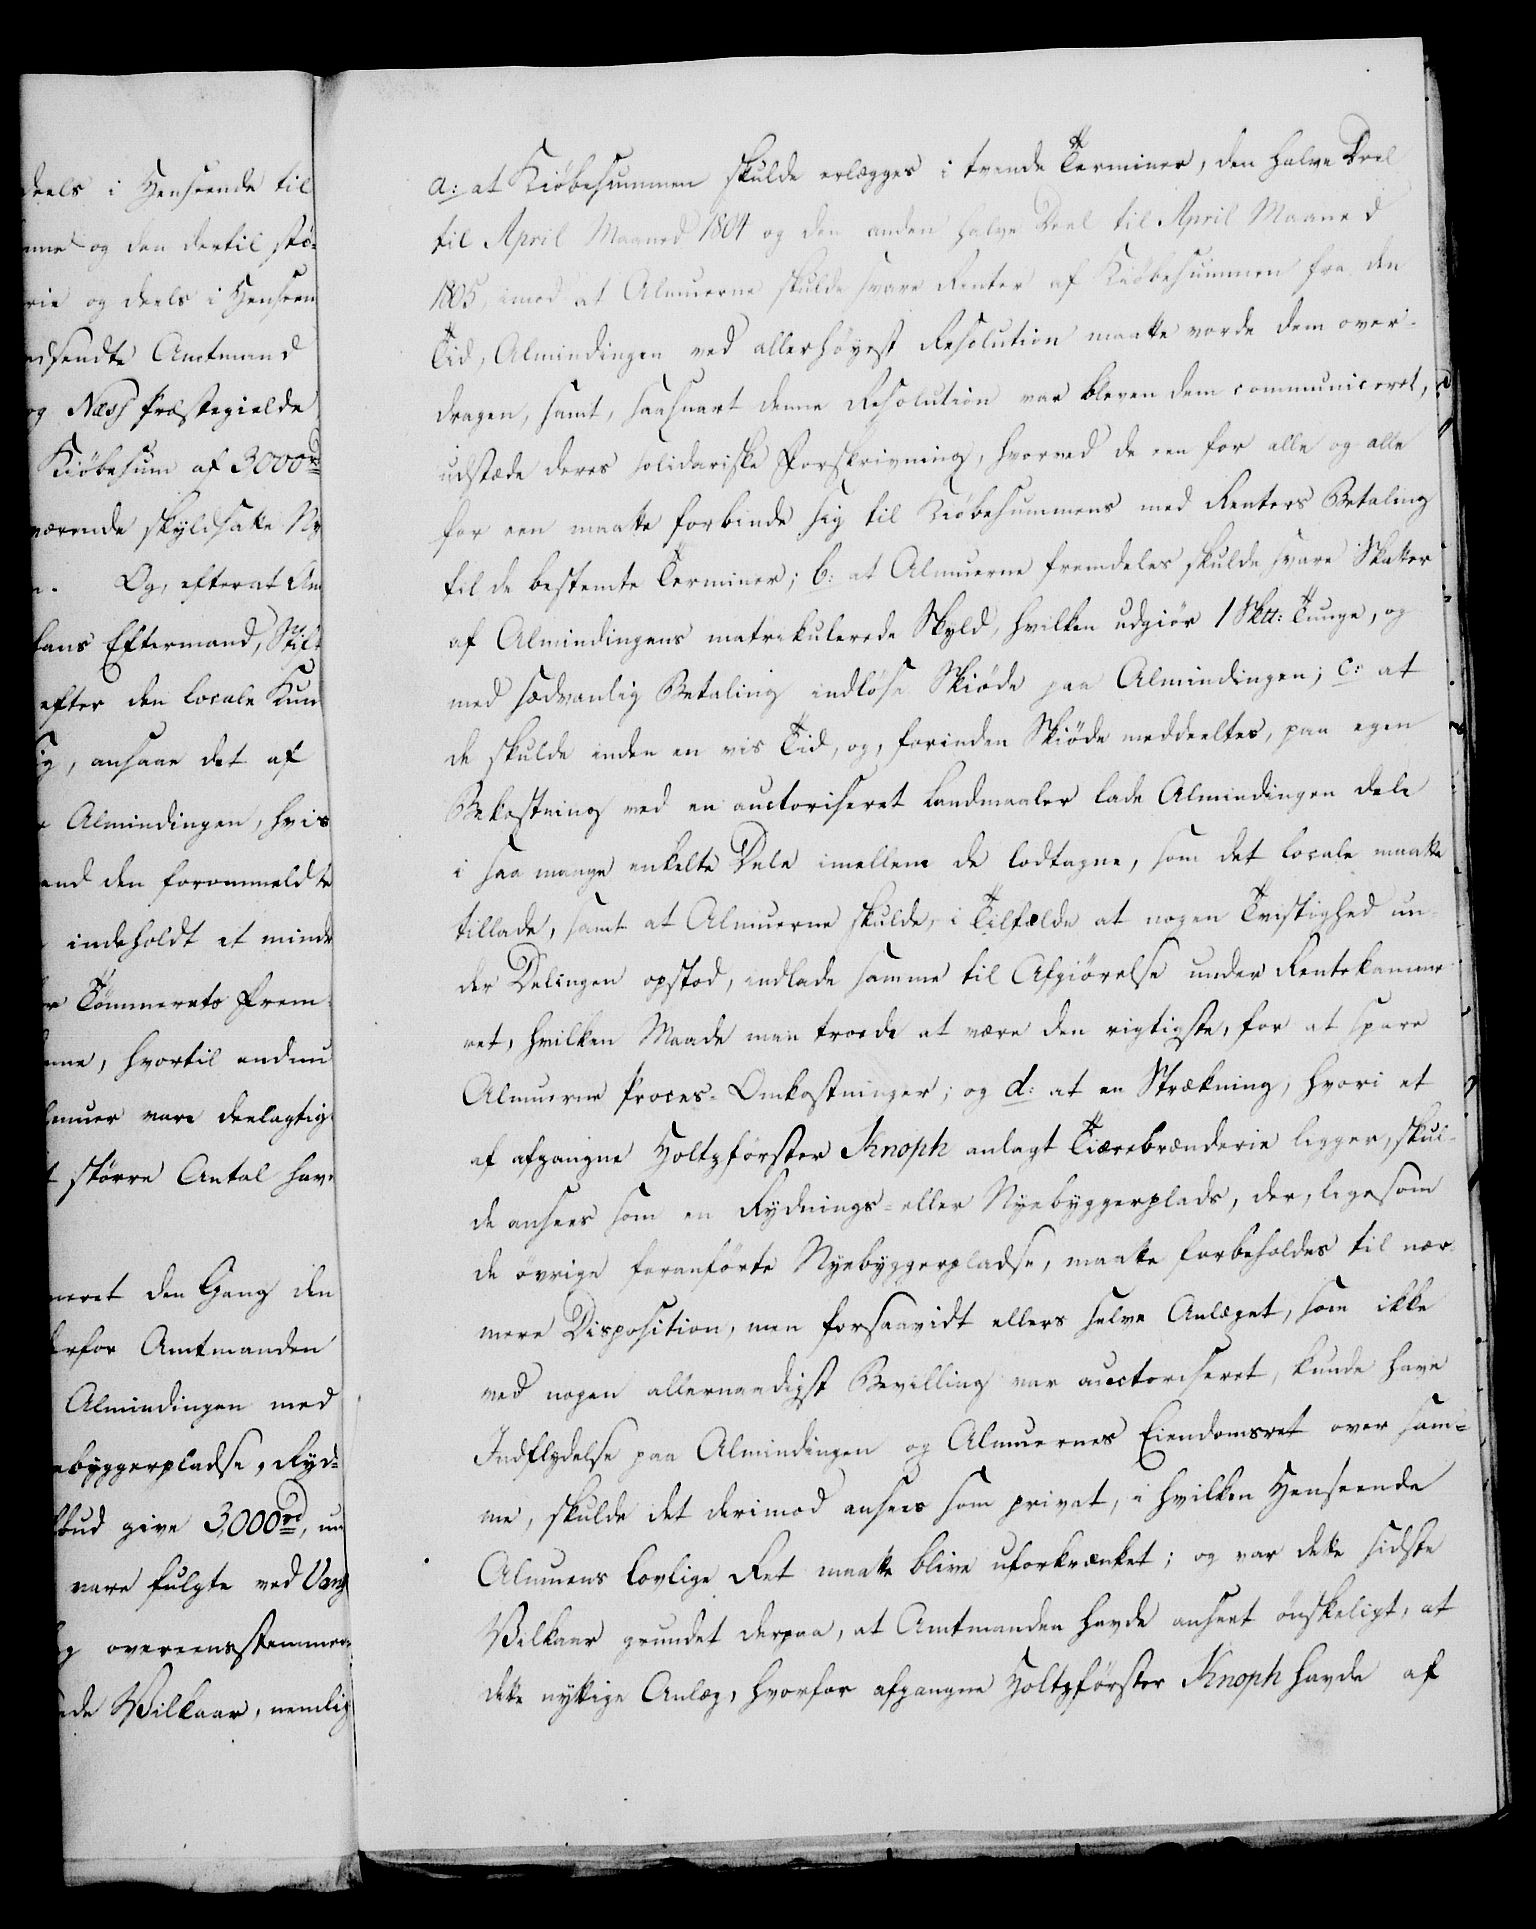 deels i Henseende til
og den dertil stö-
rie og deels i Henseen
Amtmand
og Næss Præstegielde
Kiöbesum af 3000rd
værende skyldsatte Ny
Og, efterat Am
hans Eftermand, Stif-
efter den locale Kun
ansaae det af
Almindingen, hvis
den forommeldte
indeholdt et mindre
Tömmerets Frem-
hvortil endnu
lmuer vare deelagtig
större Antal hav-
den Gang den
rfor Amtmanden
Almindingen med
ebyggerpladse, Ryd-
bud give 3,000rd, un
vare fulgte ved Vang
overeensstemmen-
de Vilkaar, nemlig
a: at Kiöbesummen skulde erlægges i tvende Terminer, den halve Deel
til April Maaned 1804 og den anden halve Deel til April Maaned
1805, imod at Almuerne skulde svare Renter af Kiöbesummen fra den
Tid, Almindingen ved allerhöyest Resolution maatte vorde dem over-
dragen, samt, saasnart denne Resolution var bleven dem communiceret,
udstæde deres solidariske Forskrivning, hvorved de een for alle og alle
for een maatte forbinde sig til Kiöbesummens med Renters Betaling
til de bestemte Terminer; b: at Almuerne fremdeles skulde svare Skatter
af Almindingens matrikulerede Skyld, hvilken udgiör 1 Skt: Tunge, og
med sædvanlig Betaling indlöse Skiöde paa Almindingen; c: at
de skulde inden en vis Tid, og, forinden Skiöde meddeeltes, paa egen
Bekostning ved en auctoriseret Landmaaler lade Almindingen dele
i saa mange enkelte Dele imellem de lodtagne, som det locale maatte
tillade, samt at Almuerne skulde, i Tilfælde at nogen Tvistighed un-
der Delingen opstod, indlade samme til Afgiörelse under Rentekamme-
ret, hvilken Maade man troede at være den rigtigste, for at spare
Almuerne Proces-Omkostninger; og d: at en Strækning, hvori et
af afgangne Holtzförster Knoph anlagt Tiærebrænderie ligger, skul-
de ansees som en Rydnings- eller Nyebyggerplads, der, ligesom
de övrige foranförte Nyebyggerpladse, maatte forbeholdes til nær-
mere Disposition, men forsaavidt ellers selve Anlæget, som ikke
ved nogen allernaadigst Bevilling var auctoriseret, kunde have
Indflydelse paa Almindingen og Almuernes Eiendomsret over sam-
me, skulde det derimod ansees som privat, i hvilken Henseende
Almuens lovlige Ret maatte blive uforkrænket; og var dette sidste
Vilkaar grundet derpaa, at Amtmanden havde anseet önskeligt, at
dette nyttige Anlæg, hvorfor afgangne Holtzförster Knoph havde af